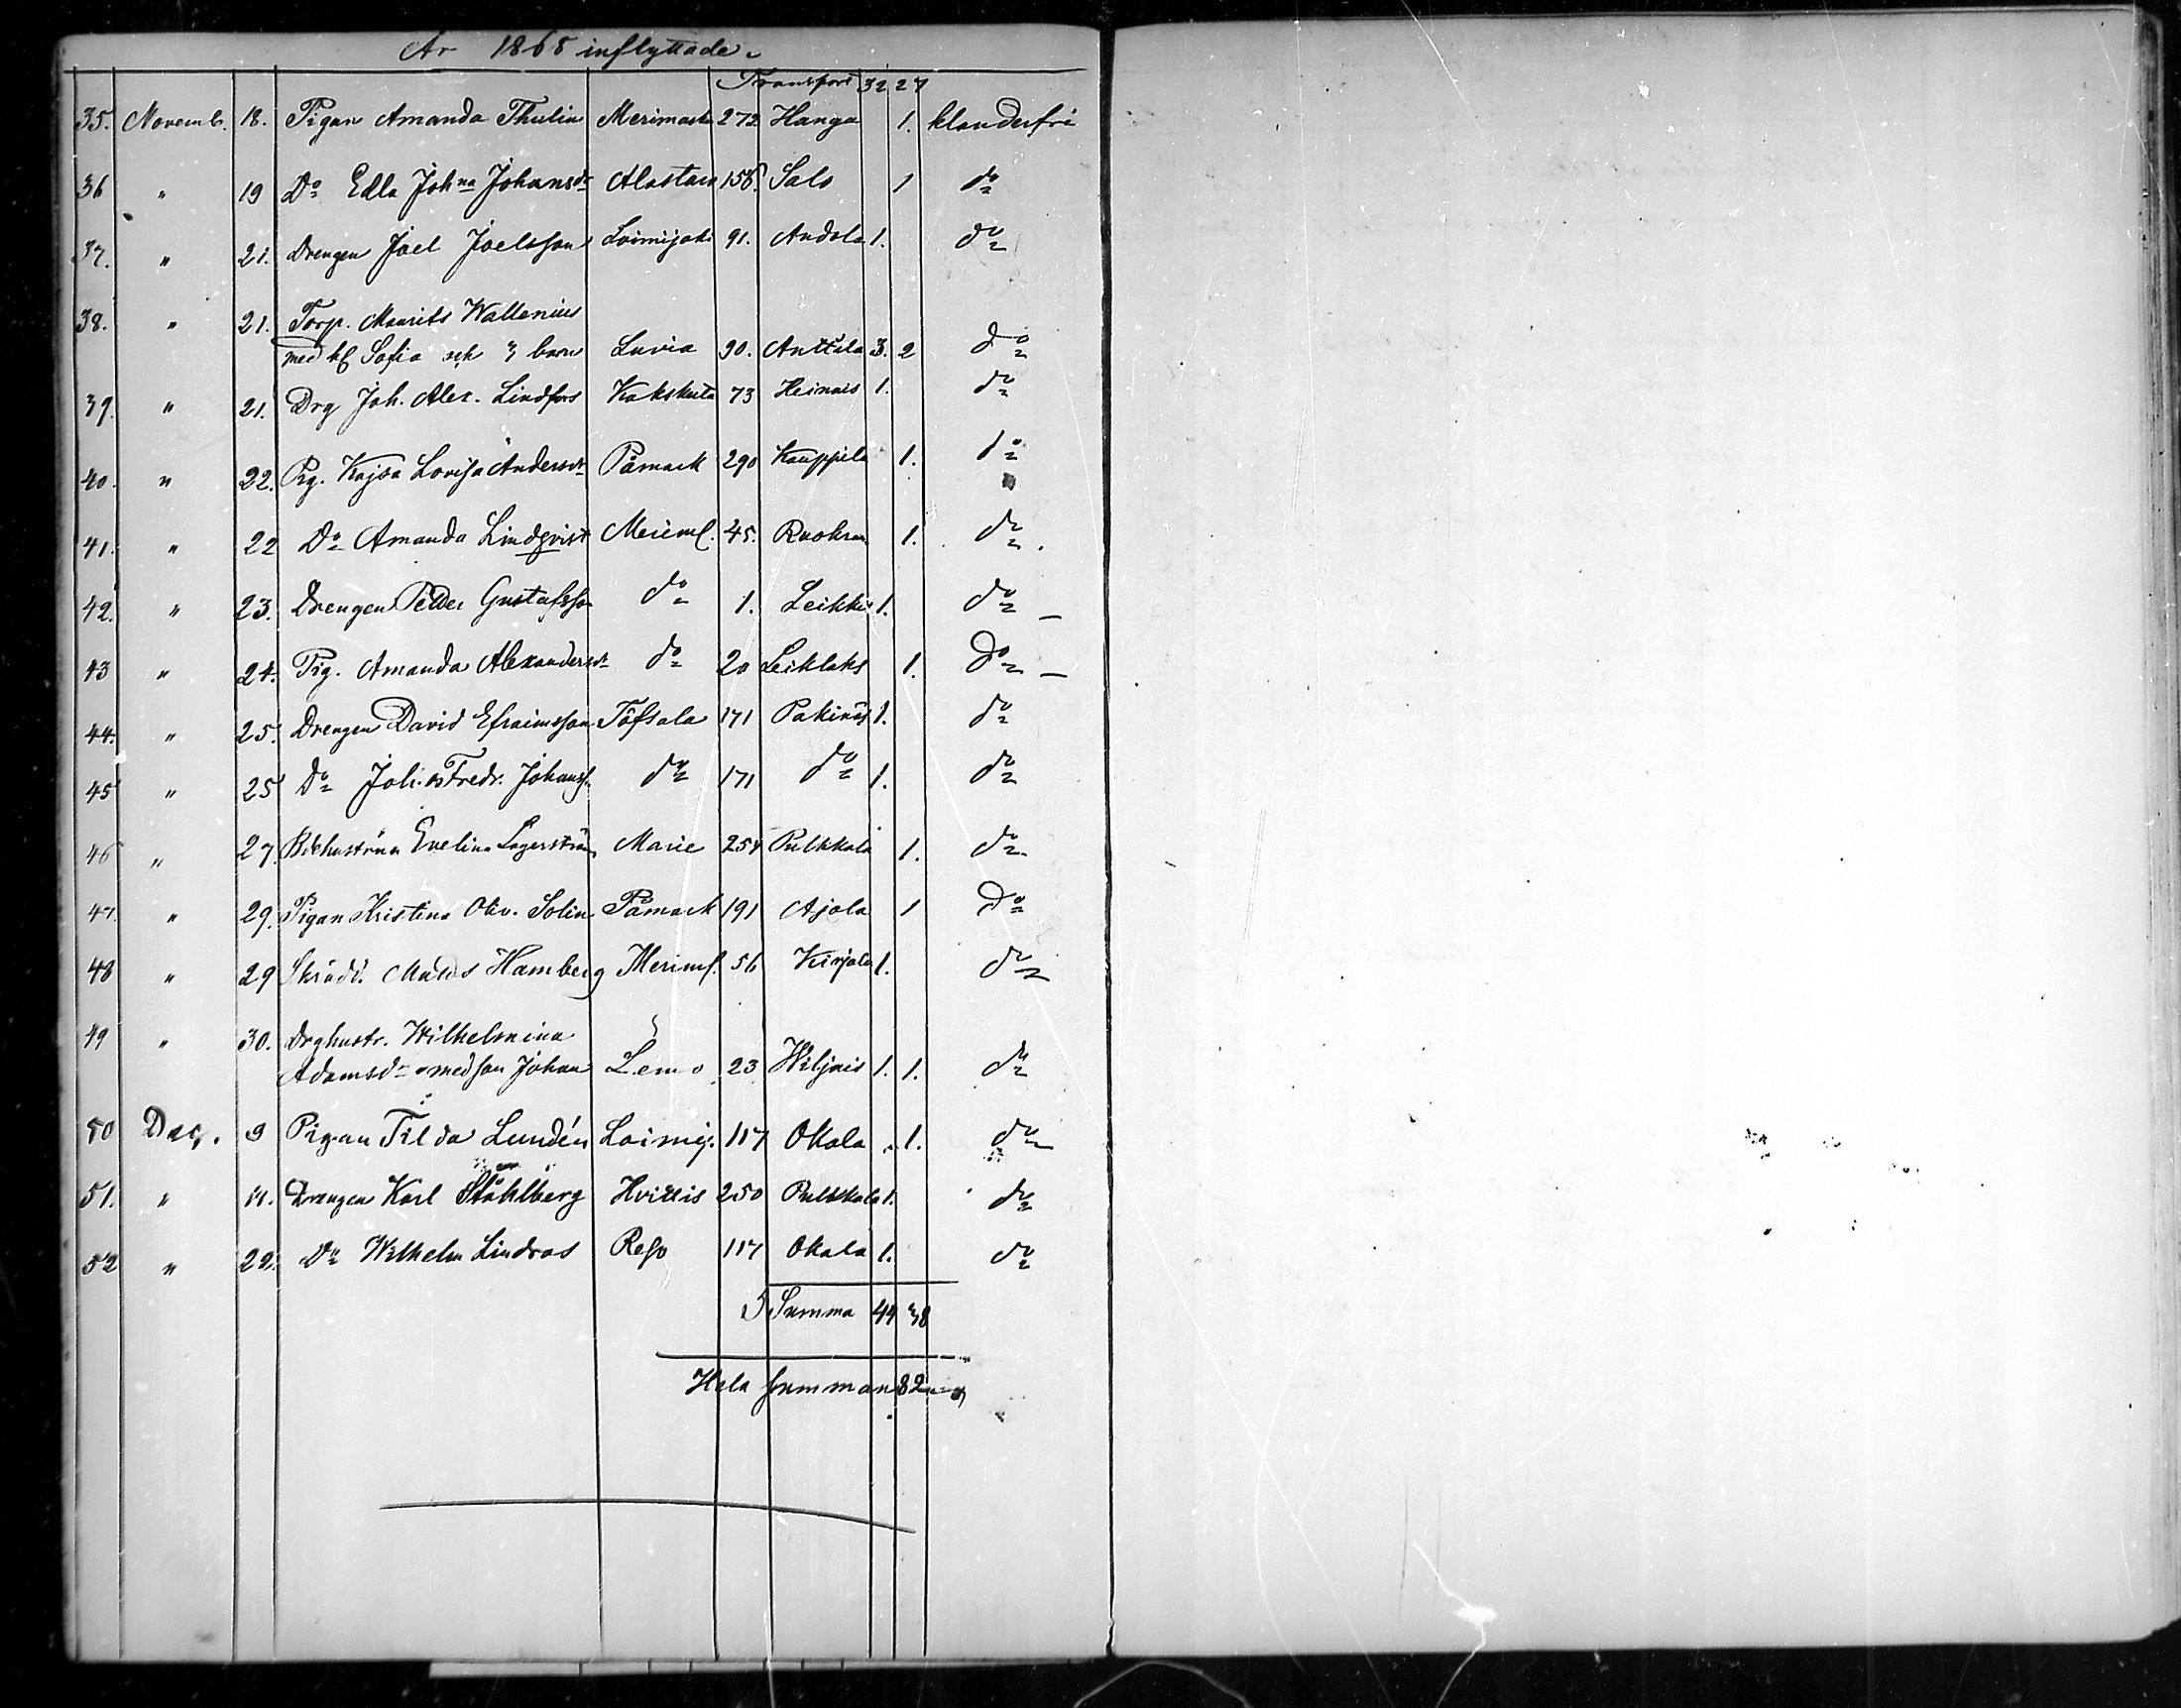 År 1865 inflyttade.
Transport 32 27
35. Novemb. 18. Pigan Amanda Thulin Merimask 272 Hanga 1. klanderfri
36 " 19 Do Edla Johna Johansdr Alastaro 158. Salo 1 do
37. " 21. Drengen Joel Joelsson Loimijoki 91. Andola 1. do
38. " 21. Torp. Maurits Wallenius
med h Sofia och 3 barn Luvia 90. Anttila 3. 2 do
39. " 21. Drg Joh. Alex. Lindfors Kakskerta 73 Heinois 1. do
40. " 22. Pig. Kajsa Lovisa Andersdr Påmark 290 Kauppila 1. do
41. " 22 Do Amanda Lindqvist Merim. 45. 1. do
42. " 23. Drengen Petter Gustafsson do 1. Leikki 1. do
43 " 24. Pig. Amanda Alexandersdr do 20 Leiklaks 1. do
44. " 25. Drengen David Efraimsson Töfsala 171 Pakinis 1. do
45 " 25 Do Joh. Fredr. Johanss. do 171 do 1. do
46 " 27. Evelina Lagerström Marie 254 Pulkkala 1. do
47. " 29. Pigan Kristina Oliv. Solin Påmark 191 Ajola 1 do
48 " 29 Skrädd. Hamberg Merim. 56 Kirjala 1. do
49 " 30. Drghustr. Wilhelmina
Adamsdr med son Johan Lemo 23 Wiljais 1. 1. do
50 Dec. 9 Pigan Tilda Lundén Loimij. 117 Okala 1. do
51. " 11. Drengen Karl Ståhlberg Hvittis 250 Pulkkala 1. do
52 " 22. Do Wilhelm Lindroos Reso 117 Okala 1. do
Summa 44 38
Hela summan 82